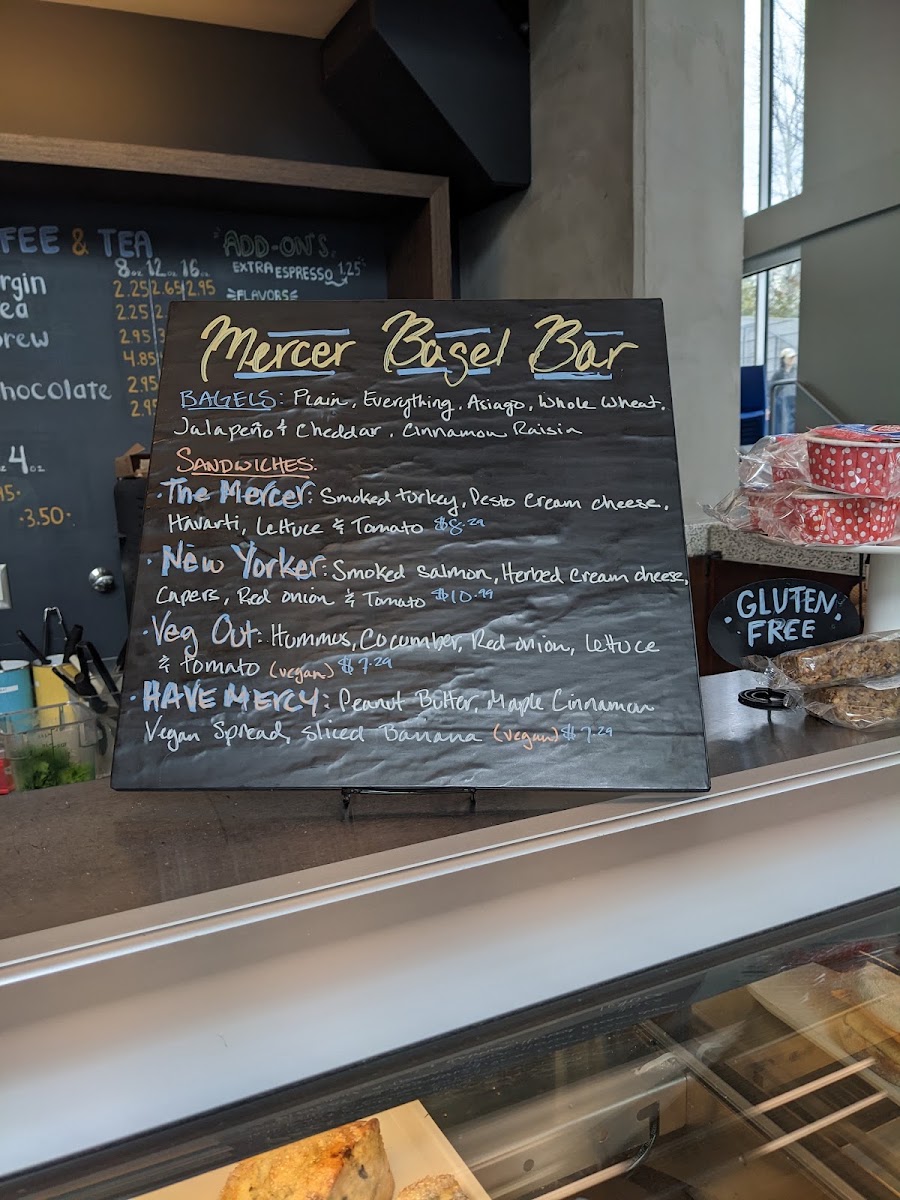 FEE & TEA
8oz 12oz 16oz
rgin 2.25 2.65 2.95
ea 2.25
rew 2.95
4.85
hocolate 2.95
4oz
3.50
ADD-ON'S
EXTRA ESPRESSO 1.25
FLAVORS
Mercer Bagel Bar
BAGELS: Plain, Everything, Asiago, Whole Wheat,
Jalapeño & Cheddar, Cinnamon Raisin
SANDWICHES:
· The Mercer: Smoked turkey, Pesto Cream cheese,
Havarti, Lettuce & Tomato $8.29
· New Yorker: Smoked Salmon, Herbed Cream cheese,
Capers, Red onion & Tomato $10.99
· Veg Out: Hummus, Cucumber, Red onion, Lettuce
& Tomato (vegan) $7.29
· HAVE MERCY: Peanut Butter, Maple Cinnamon
Vegan Spread, Sliced Banana (vegan) $7.29
GLUTEN
· FREE ·